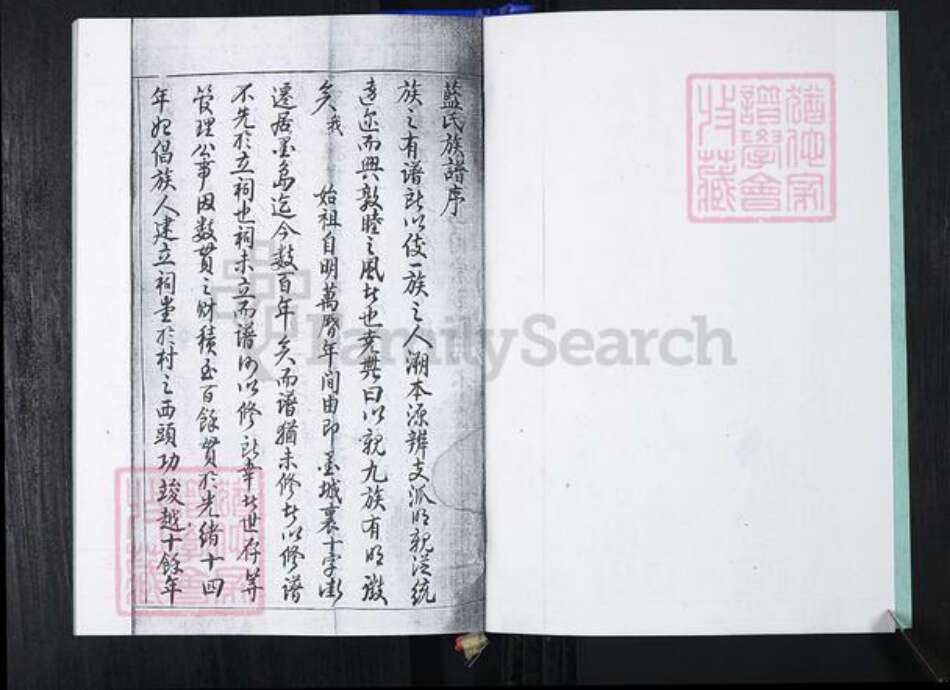 藍氏族譜序
族之有譜所以使一族之人溯本源辨支派明親疏統
遠迩而興敦睦之風者也堯典曰以親九族有明徵
矣我 始祖自明萬曆年間由即墨城裏十字街
遷居墨島迄今数百年矣而譜猶未修者以修譜
不先於立祠也祠未立而譜何以修所幸者世存等
管理公事因数貫之财積至百餘貫於光绪十四
年妃倡族人建立祠堂於村之西頭功竣越十餘年
猶他家
譜學會
收藏
FamilySearch